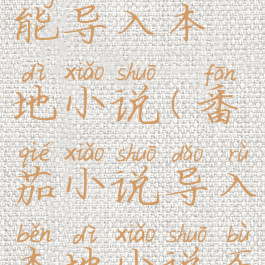 能导入本
dì xiǎo shuō fān
地小说(番
qié xiǎo shuō dǎo rù
茄小说导入
běn dì xiǎo shuō bù
本地小说不